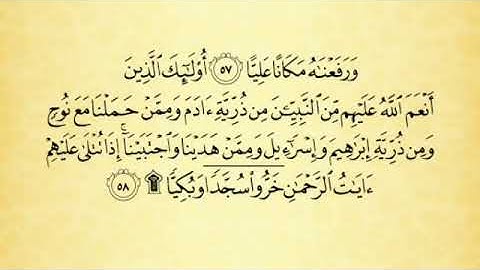 وَرَفَعْنَٰهُ مَكَانًا عَلِيًّا ٥٧ أُو۟لَٰٓئِكَ ٱلَّذِينَ
أَنْعَمَ ٱللَّهُ عَلَيْهِم مِّنَ ٱلنَّبِيِّـۧنَ مِن ذُرِّيَّةِ ءَادَمَ وَمِمَّنْ حَمَلْنَا مَعَ نُوحٍ
وَمِن ذُرِّيَّةِ إِبْرَٰهِيمَ وَإِسْرَٰٓءِيلَ وَمِمَّنْ هَدَيْنَا وَٱجْتَبَيْنَآ ۚ إِذَا تُتْلَىٰ عَلَيْهِمْ
ءَايَٰتُ ٱلرَّحْمَٰنِ خَرُّوا۟ سُجَّدًا وَبُكِيًّا ۩ ٥٨